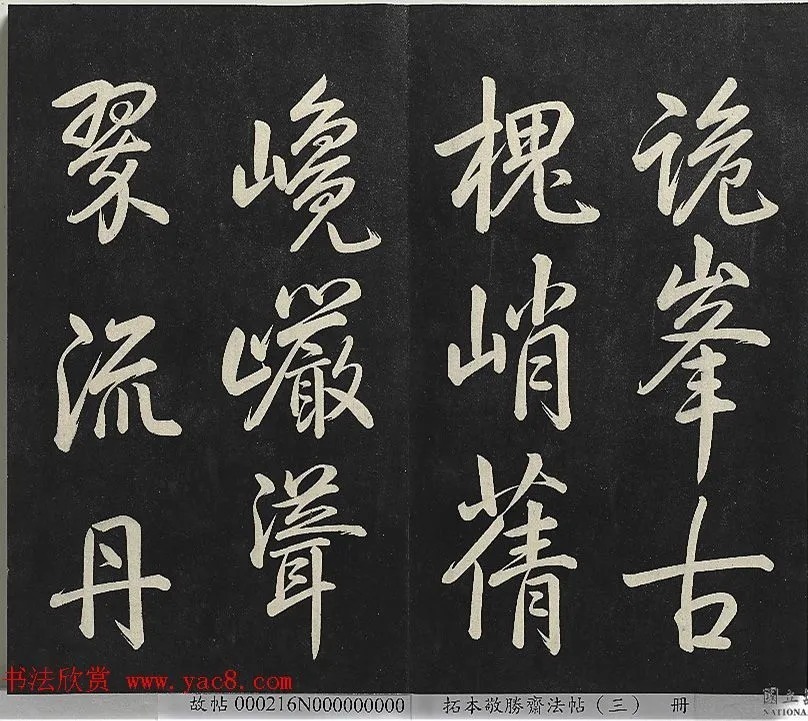 詭峯古
槐峭蒨
巉巖聳
翠流丹
书法欣赏 www.yac8.com
故帖 000216N000000000
拓本敬勝齋法帖（三） 册
國立